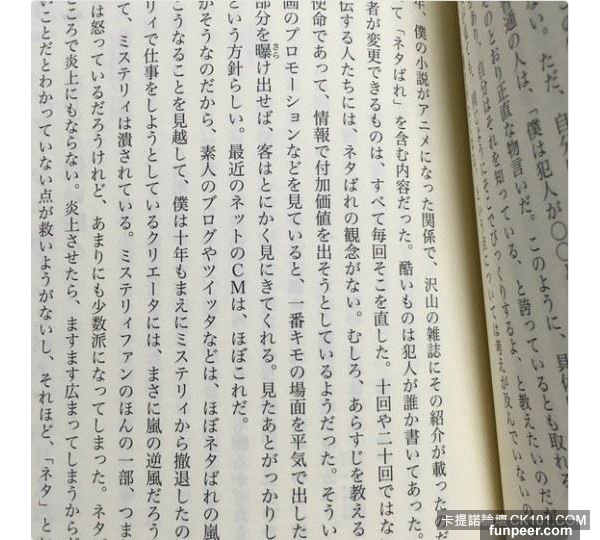 ない。ただ、自分
通の人は、「僕は犯人が〇〇
とおり正直な物言いだ。このように、具体
自分はそれを知っている、と誇っているとも取れる
そこでびっくりするよ、と教えたいのだ
については考えが及んでいないの
年、僕の小説がアニメになった関係で、沢山の雑誌にその紹介が載ったのだ
て「ネタばれ」を含む内容だった。酷いものは犯人が誰か書いてあった。
者が変更できるものは、すべて毎回そこを直した。十回や二十回ではな
伝する人たちには、ネタばれの観念がない。むしろ、あらすじを教える
使命であって、情報で付加価値を出そうとしているようだった。そうい
画のプロモーションなどを見ていると、一番キモの場面を平気で出した
部分を曝け出せば、客はとにかく見にきてくれる。見たあとがっかりし
さら
という方針らしい。最近のネットのCMは、ほぼこれだ。
がそうなのだから、素人のブログやツイッタなどは、ほぼネタばれの嵐
こうなることを見越して、僕は十年もまえにミステリィから撤退したの
リィで仕事をしようとしているクリエータには、まさに嵐の逆風だろう
て、ミステリィは潰されている。ミステリィファンのほんの一部、つま
は怒っているだろうけれど、あまりにも少数派になってしまった。ネタ
ころで炎上にもならない。炎上させたら、ますます広まってしまうからだ
いことだとわかっていない点が救いようがないし、それほど、「ネタ」と
卡提諾論壇 CK101.COM
funpeer.com